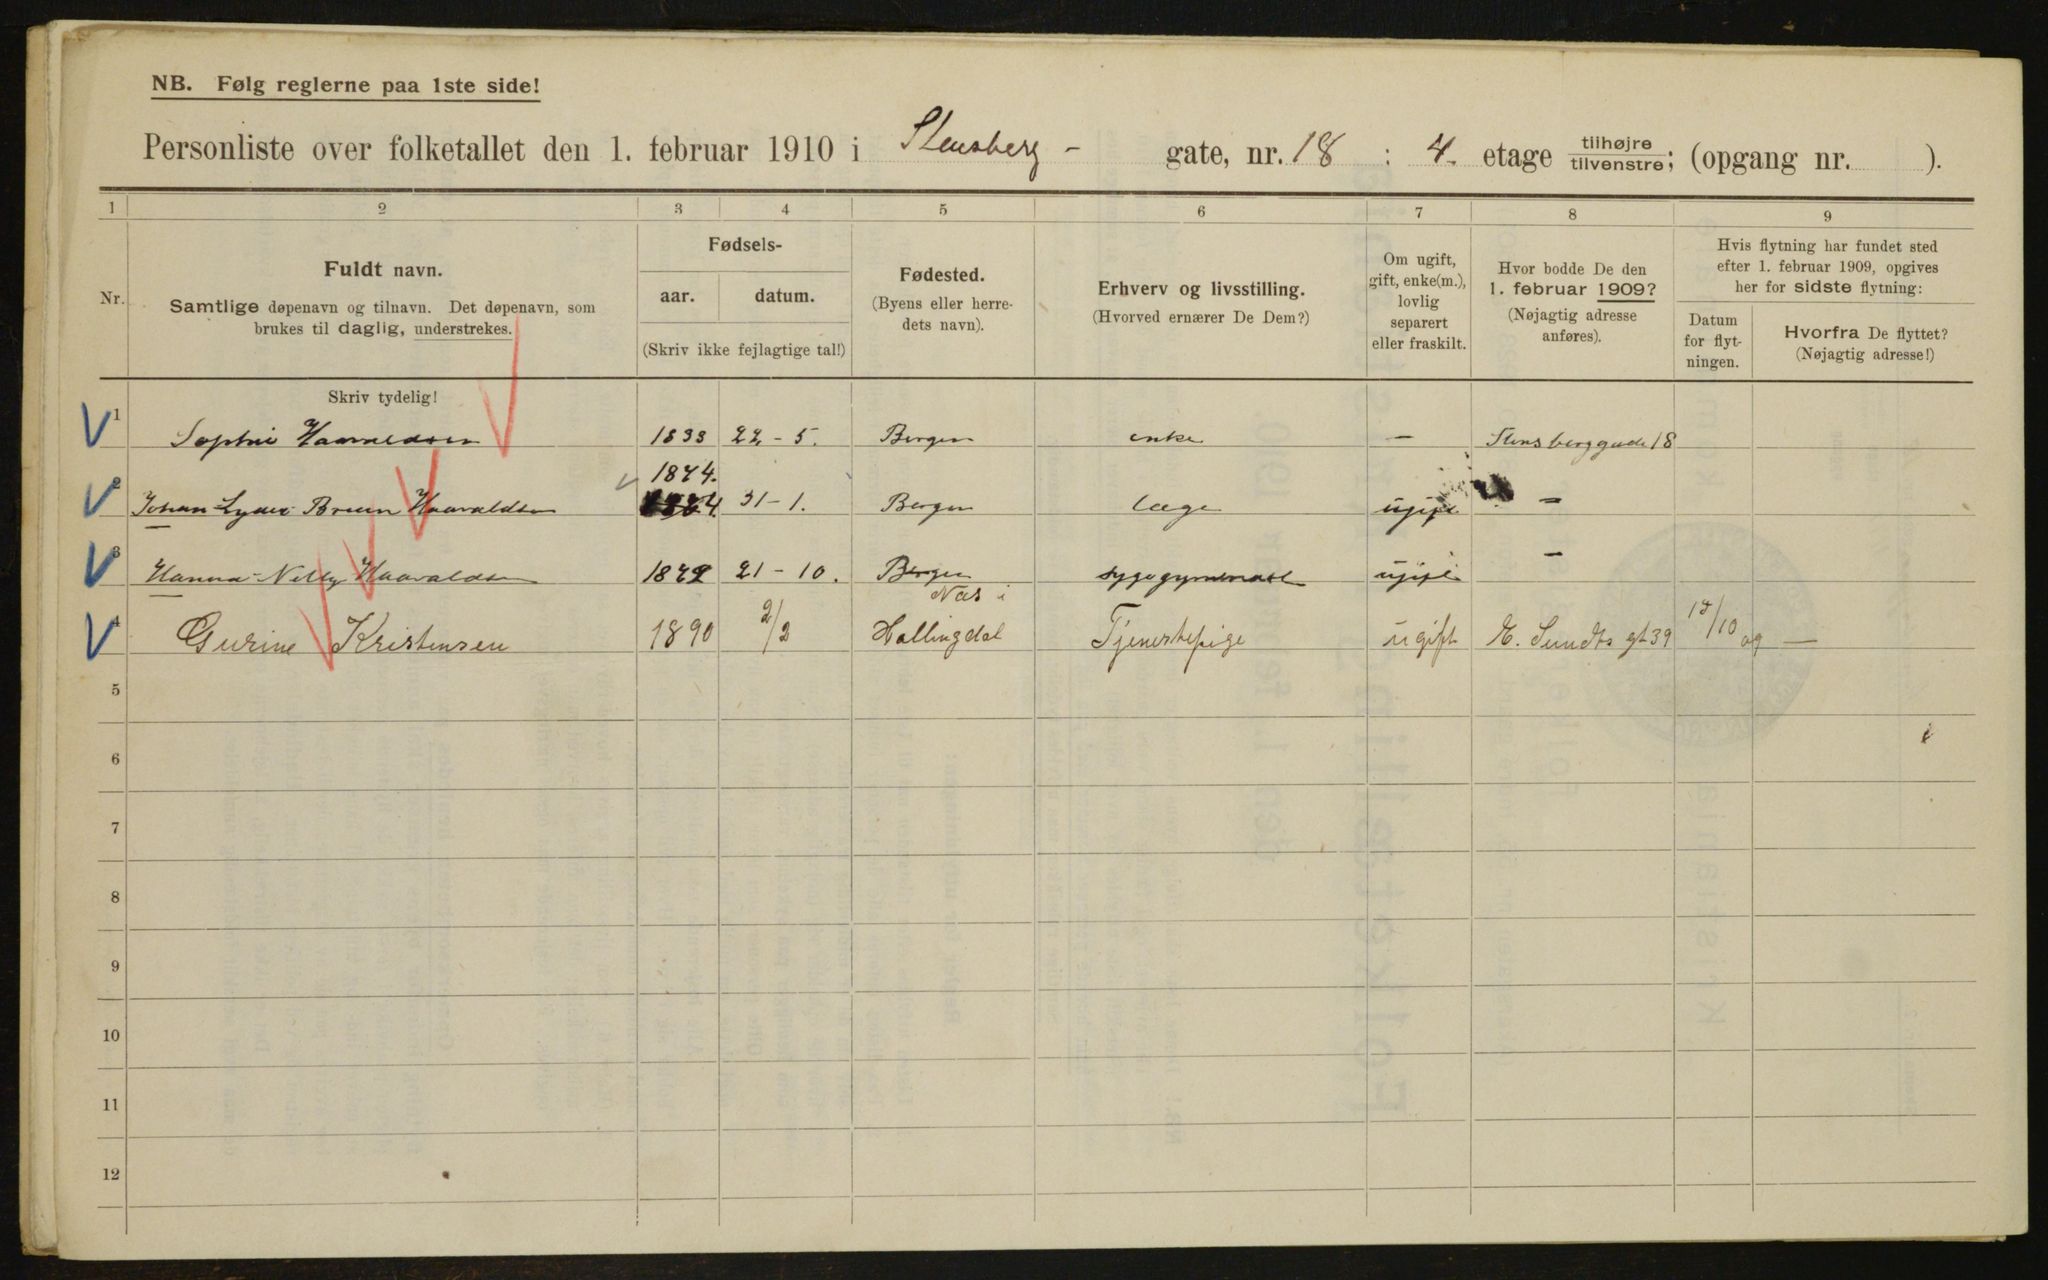 NB. Følg reglerne paa 1ste side!
Personliste over folketallet den 1. februar 1910 i Stensberg- gate, nr. 18 : 4. etage tilhøjre tilvenstre; (opgang nr. ).
1 2 3 4 5 6 7 8 9
Nr.
Fuldt navn.
Samtlige døpenavn og tilnavn. Det døpenavn, som
brukes til daglig, understrekes.
Fødsels-
aar. datum.
(Skriv ikke fejlagtige tal!)
Fødested.
(Byens eller herre-
dets navn).
Erhverv og livsstilling.
(Hvorved ernærer De Dem?)
Om ugift,
gift, enke(m.),
lovlig
separert
eller fraskilt.
Hvor bodde De den
1. februar 1909?
(Nøjagtig adresse
anføres).
Hvis flytning har fundet sted
efter 1. februar 1909, opgives
her for sidste flytning:
Datum
for flyt-
ningen.
Hvorfra De flyttet?
(Nøjagtig adresse!)
Skriv tydelig!
1 Sophie Haavaldsen 1833 22-5. Bergen enke — Stensberggade 18
1874.
2 Johan Lyder Bruun Haavaldsen 31-1. Bergen læge ugift -
3 Hanna-Nelly Haavaldsen 1872 21-10. Bergen sygegymnast ugift -
Næs i
4 Gurine Kristensen 1890 2/2 Hallingdal Tjenestepige ugift E. Sundts gt 39 /10 09 —
5
6
7
8
9
10
11
12